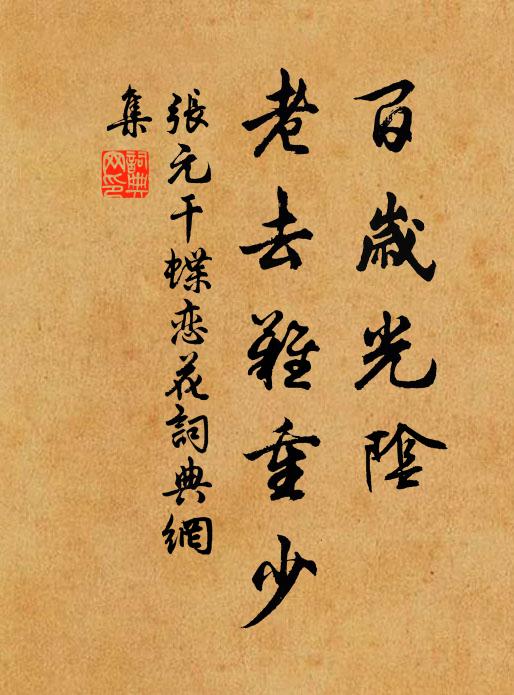 百歲光陰
老去難重少
張元干蝶恋花詞典網
集
詞典網印